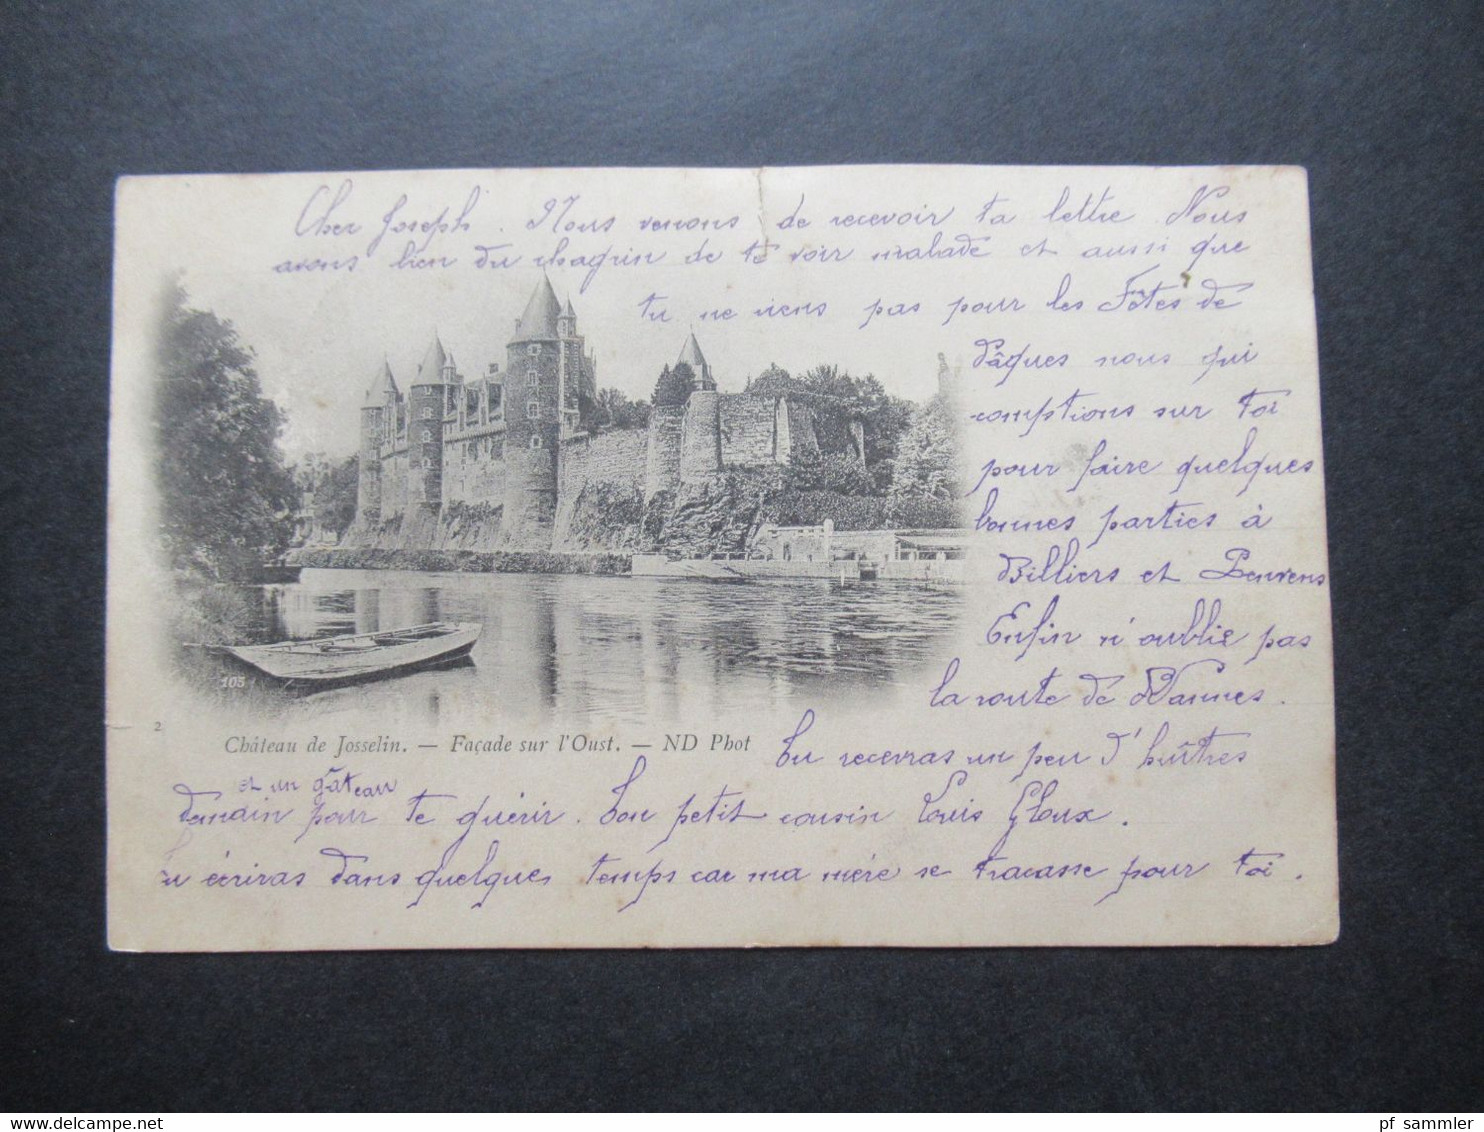 Cher Joseph. Nous venons de recevoir ta lettre Nous
avons bien du chagrin de te voir malade et aussi que
tu ne viens pas pour les Fêtes de
Pâques nous qui
comptions sur toi
pour faire quelques
bonnes parties à
Billiers et
Enfin n'oublie pas
la route de Vannes.
2
103
Château de Josselin. — Façade sur l'Oust. — ND Phot
tu recevras un peu d'huîtres
et un gâteau
demain pour te guérir. ton petit cousin Louis Gloux.
tu écriras dans quelques temps car ma mère se tracasse pour toi.
pf_sammler